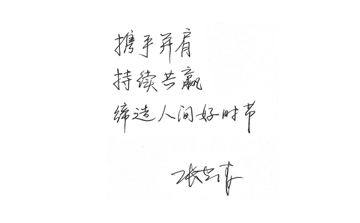 携手并肩
持续共赢
缔造人间好时节